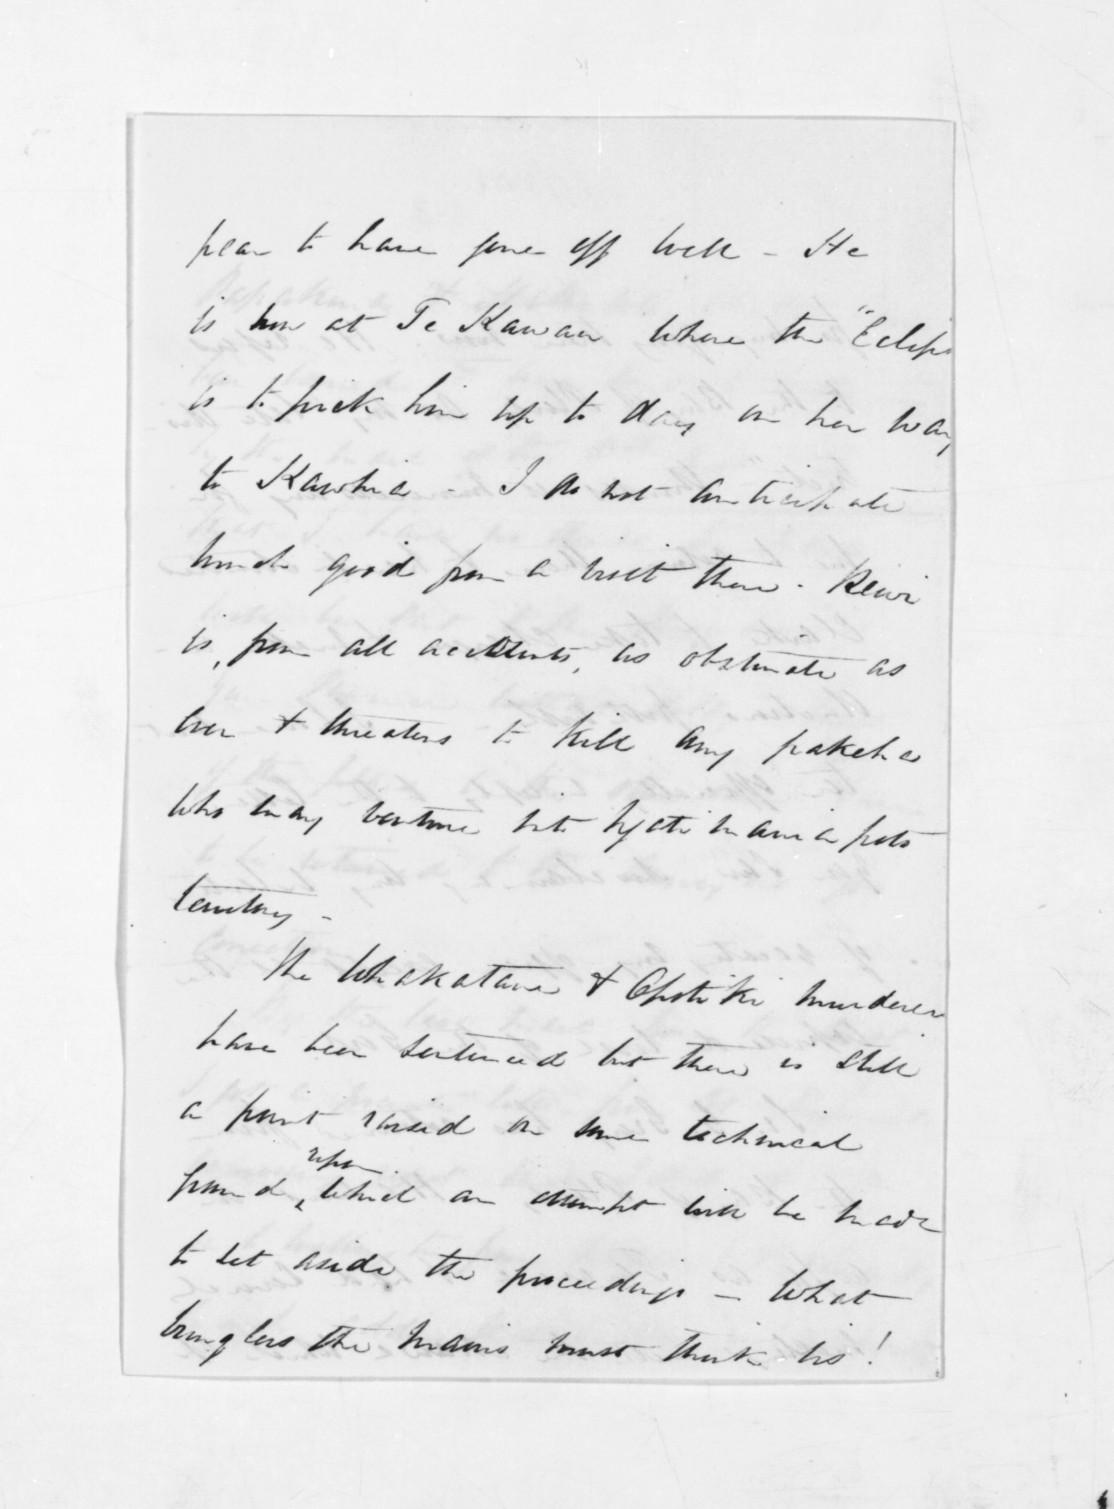 pear to have gone off well - He
is now at Te Kawau where the "Eclips
is to pick him up to day on her way
to Kawhia - I do not anticipate
much good from a visit there. Rewi
is, from all accounts, as obstinate as
ever & threatens to kill any pakeha
who may venture into Ngatimaniapoto
territory -
The Whakatane & Opotiki murderers
have been sentenced but there is still
a point raised on some technical
upon
ground, which an attempt will be made
to set aside the proceedings - What
bunglers the Maoris must think us!